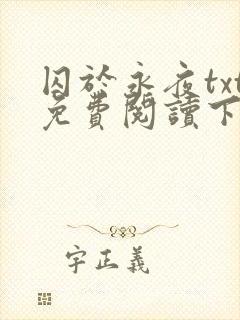 囚於永夜txt
免費閱讀下
字正義